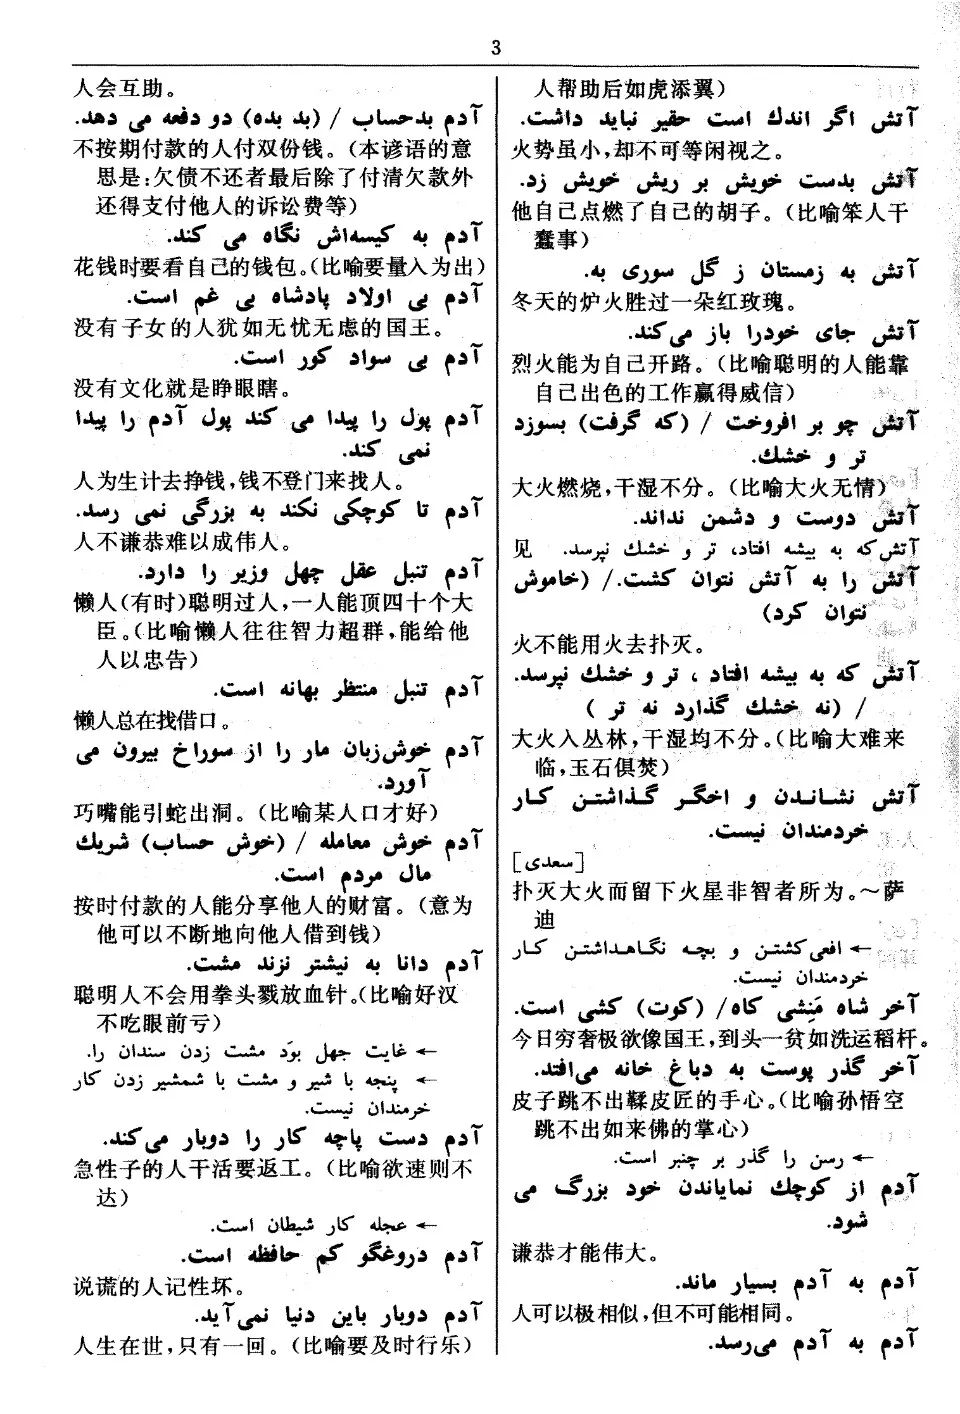 3
人帮助后如虎添翼)
آتش اگر اندك است حقیر نباید داشت.
火势虽小,却不可等闲视之。
آتش بدست خویش بر ریش خویش زد.
他自己点燃了自己的胡子。(比喻笨人干
蠢事)
آتش به زمستان ز گل سوری به.
冬天的炉火胜过一朵红玫瑰。
آتش جای خودرا باز می‌کند.
烈火能为自己开路。(比喻聪明的人能靠
自己出色的工作赢得威信)
آتش چو بر افروخت / (که گرفت) بسوزد
تر و خشك.
大火燃烧,干湿不分。(比喻大火无情)
آتش دوست و دشمن نداند.
آتش‌که به بیشه افتاد، تر و خشك نپرسد. 见
آتش را به آتش نتوان کشت./ (خاموش
نتوان کرد)
火不能用火去扑灭。
آتش که به بیشه افتاد ، تر و خشك نپرسد.
/ (نه خشك گذارد نه تر )
大火入丛林,干湿均不分。(比喻大难来
临,玉石俱焚)
آتش نشـانـدن و اخگـر گـذاشتـن کـار
خردمندان نیست.
[سعدی]
扑灭大火而留下火星非智者所为。~萨
迪
← افعی‌کشتـن و بچـه نگـاهـداشتـن کـار
خردمندان نیست.
آخر شاه مَنِشی کاه/ (کوت) کشی است.
今日穷奢极欲像国王,到头一贫如洗运稻秆。
آخر گذر پوست به دباغ خانه می‌افتد.
皮子跳不出鞣皮匠的手心。(比喻孙悟空
跳不出如来佛的掌心)
← رسن را گذر بر چنبر است.
آدم از کوچك نمایاندن خود بزرگ می
شود.
谦恭才能伟大。
آدم به آدم بسیار ماند.
人可以极相似,但不可能相同。
آدم به آدم می‌رسد.
人会互助。
آدم بدحساب / (بد بده) دو دفعه می دهد.
不按期付款的人付双份钱。(本谚语的意
思是:欠债不还者最后除了付清欠款外
还得支付他人的诉讼费等)
آدم به کیسه‌اش نگاه می کند.
花钱时要看自己的钱包。(比喻要量入为出)
آدم بی اولاد پادشاه بی غم است.
没有子女的人犹如无忧无虑的国王。
آدم بی سواد کور است.
没有文化就是睁眼瞎。
آدم پول را پیدا می کند پول آدم را پیدا
نمی کند.
人为生计去挣钱,钱不登门来找人。
آدم تا کوچکی نکند به بزرگی نمی رسد.
人不谦恭难以成伟人。
آدم تنبل عقل چهل وزیر را دارد.
懒人(有时)聪明过人,一人能顶四十个大
臣。(比喻懒人往往智力超群,能给他
人以忠告)
آدم تنبل منتظر بهانه است.
懒人总在找借口。
آدم خوش‌زبان مار را از سوراخ بیرون می
آورد.
巧嘴能引蛇出洞。(比喻某人口才好)
آدم خوش معامله / (خوش حساب) شریك
مال مردم است.
按时付款的人能分享他人的财富。(意为
他可以不断地向他人借到钱)
آدم دانا به نیشتر نزند مشت.
聪明人不会用拳头戳放血针。(比喻好汉
不吃眼前亏)
← غایت جهل بوَد مشت زدن سندان را.
← پنجه با شیر و مشت با شمشیر زدن کار
خرمندان نیست.
آدم دست پاچه کار را دوبار می‌کند.
急性子的人干活要返工。(比喻欲速则不
达)
← عجله کار شیطان است.
آدم دروغگو کم حافظه است.
说谎的人记性坏。
آدم دوبار باین دنیا نمی‌آید.
人生在世,只有一回。(比喻要及时行乐)